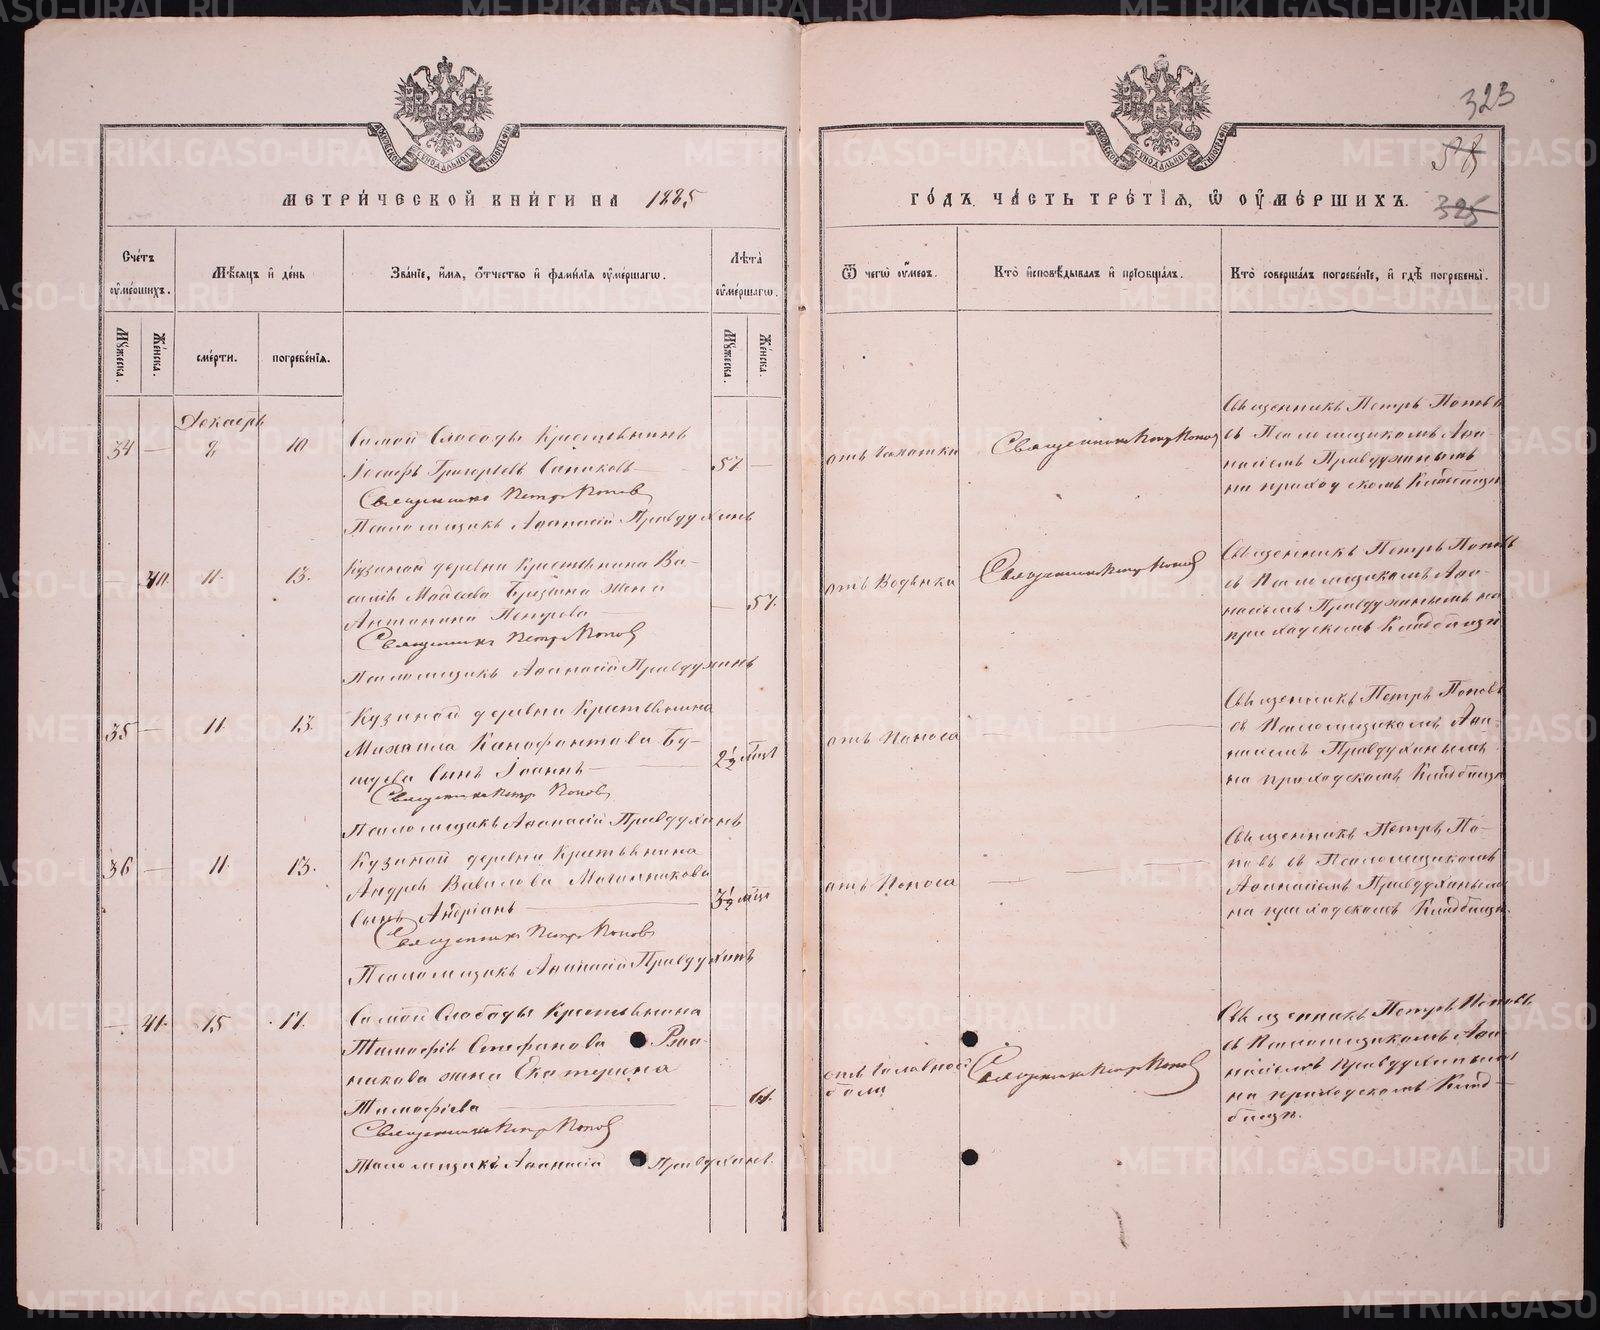 323
58
325
МЕТРИ́ЧЕСКОЙ КНИ́ГИ НА 1885
ГО́ДЪ, ЧА́СТЬ ТРЕ́ТІѦ, Ѡ ОУМЕ́РШИХЪ.
Сче́тъ оуме́ршихъ.
Мѣ́сяцъ и де́нь
Зва́нїе, и́мя, ѻ҆́тчество и фами́лїя оуме́ршагѡ.
Лѣ́та оуме́ршагѡ.
Ѿ чегѡ̀ оу́меръ.
Кто̀ и҆сповѣ́дывалъ и прїѡбща́лъ.
Кто̀ соверша́лъ погребе́нїе, и гдѣ̀ погребены̀.
Мꙋ́жеска.
Же́нска.
сме́рти.
погребе́нїя.
Мꙋ́жеска.
Же́нска.
Декабрь
34 — 8 10 Самой Слободы Крестьянинъ
Іосифъ Григорьевъ Санников —
57 —
Священникъ Петръ Поповъ
Псаломщикъ Аѳанасій Правдухинъ
отъ Чахотки
Священникъ Петръ Поповъ
Священникъ Петръ Поповъ
съ Псаломщикомъ Аѳа-
насіемъ Правдухинымъ
на приходскомъ Кладбищѣ
— 40 11. 13. Кузиной деревни Крестьянина Ва-
силія жена
Антонина Петрова —
— 57.
Священникъ Петръ Поповъ
Псаломщикъ Аѳанасій Правдухинъ
отъ Водянки
Священникъ Петръ Поповъ
Священникъ Петръ Поповъ
съ Псаломщикомъ Аѳа-
насіемъ Правдухинымъ на
приходскомъ Кладбищѣ
35 — 11 13. Кузиной деревни Крестьянина
Михаила Ксенофонтова Бу-
сынъ Іоаннъ —
2½ мѣся
Священникъ Петръ Поповъ
Псаломщикъ Аѳанасій Правдухинъ
отъ Поноса
—
Священникъ Петръ Поповъ
съ Псаломщикомъ Аѳа-
насіемъ Правдухинымъ
на приходскомъ Кладбищѣ
36 — 11. 13. Кузиной деревни Крестьянина
Андрея Вавилова
сынъ Андріанъ —
3½ мѣся
Священникъ Петръ Поповъ
Псаломщикъ Аѳанасій Правдухинъ
отъ Поноса
—
Священникъ Петръ По-
повъ съ Псаломщикомъ
Аѳанасіемъ Правдухинымъ
на приходскомъ Кладбищѣ.
— 41. 15 17. Самой Слободы Крестьянина
Тимофея Стефанова
жена Екатерина
Тимофіева —
— 61.
Священникъ Петръ Поповъ
Псаломщикъ Аѳанасій Правдухинъ.
отъ Головной
боли
Священникъ Петръ Поповъ
Священникъ Петръ Поповъ
съ Псаломщикомъ Аѳа-
насіемъ Правдухинымъ
на приходскомъ Клад-
бищѣ.
METRIKI.GASO-URAL.RU